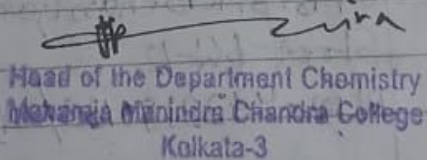 Head of the Department Chemistry
Maharaja Manindra Chandra College
Kolkata-3